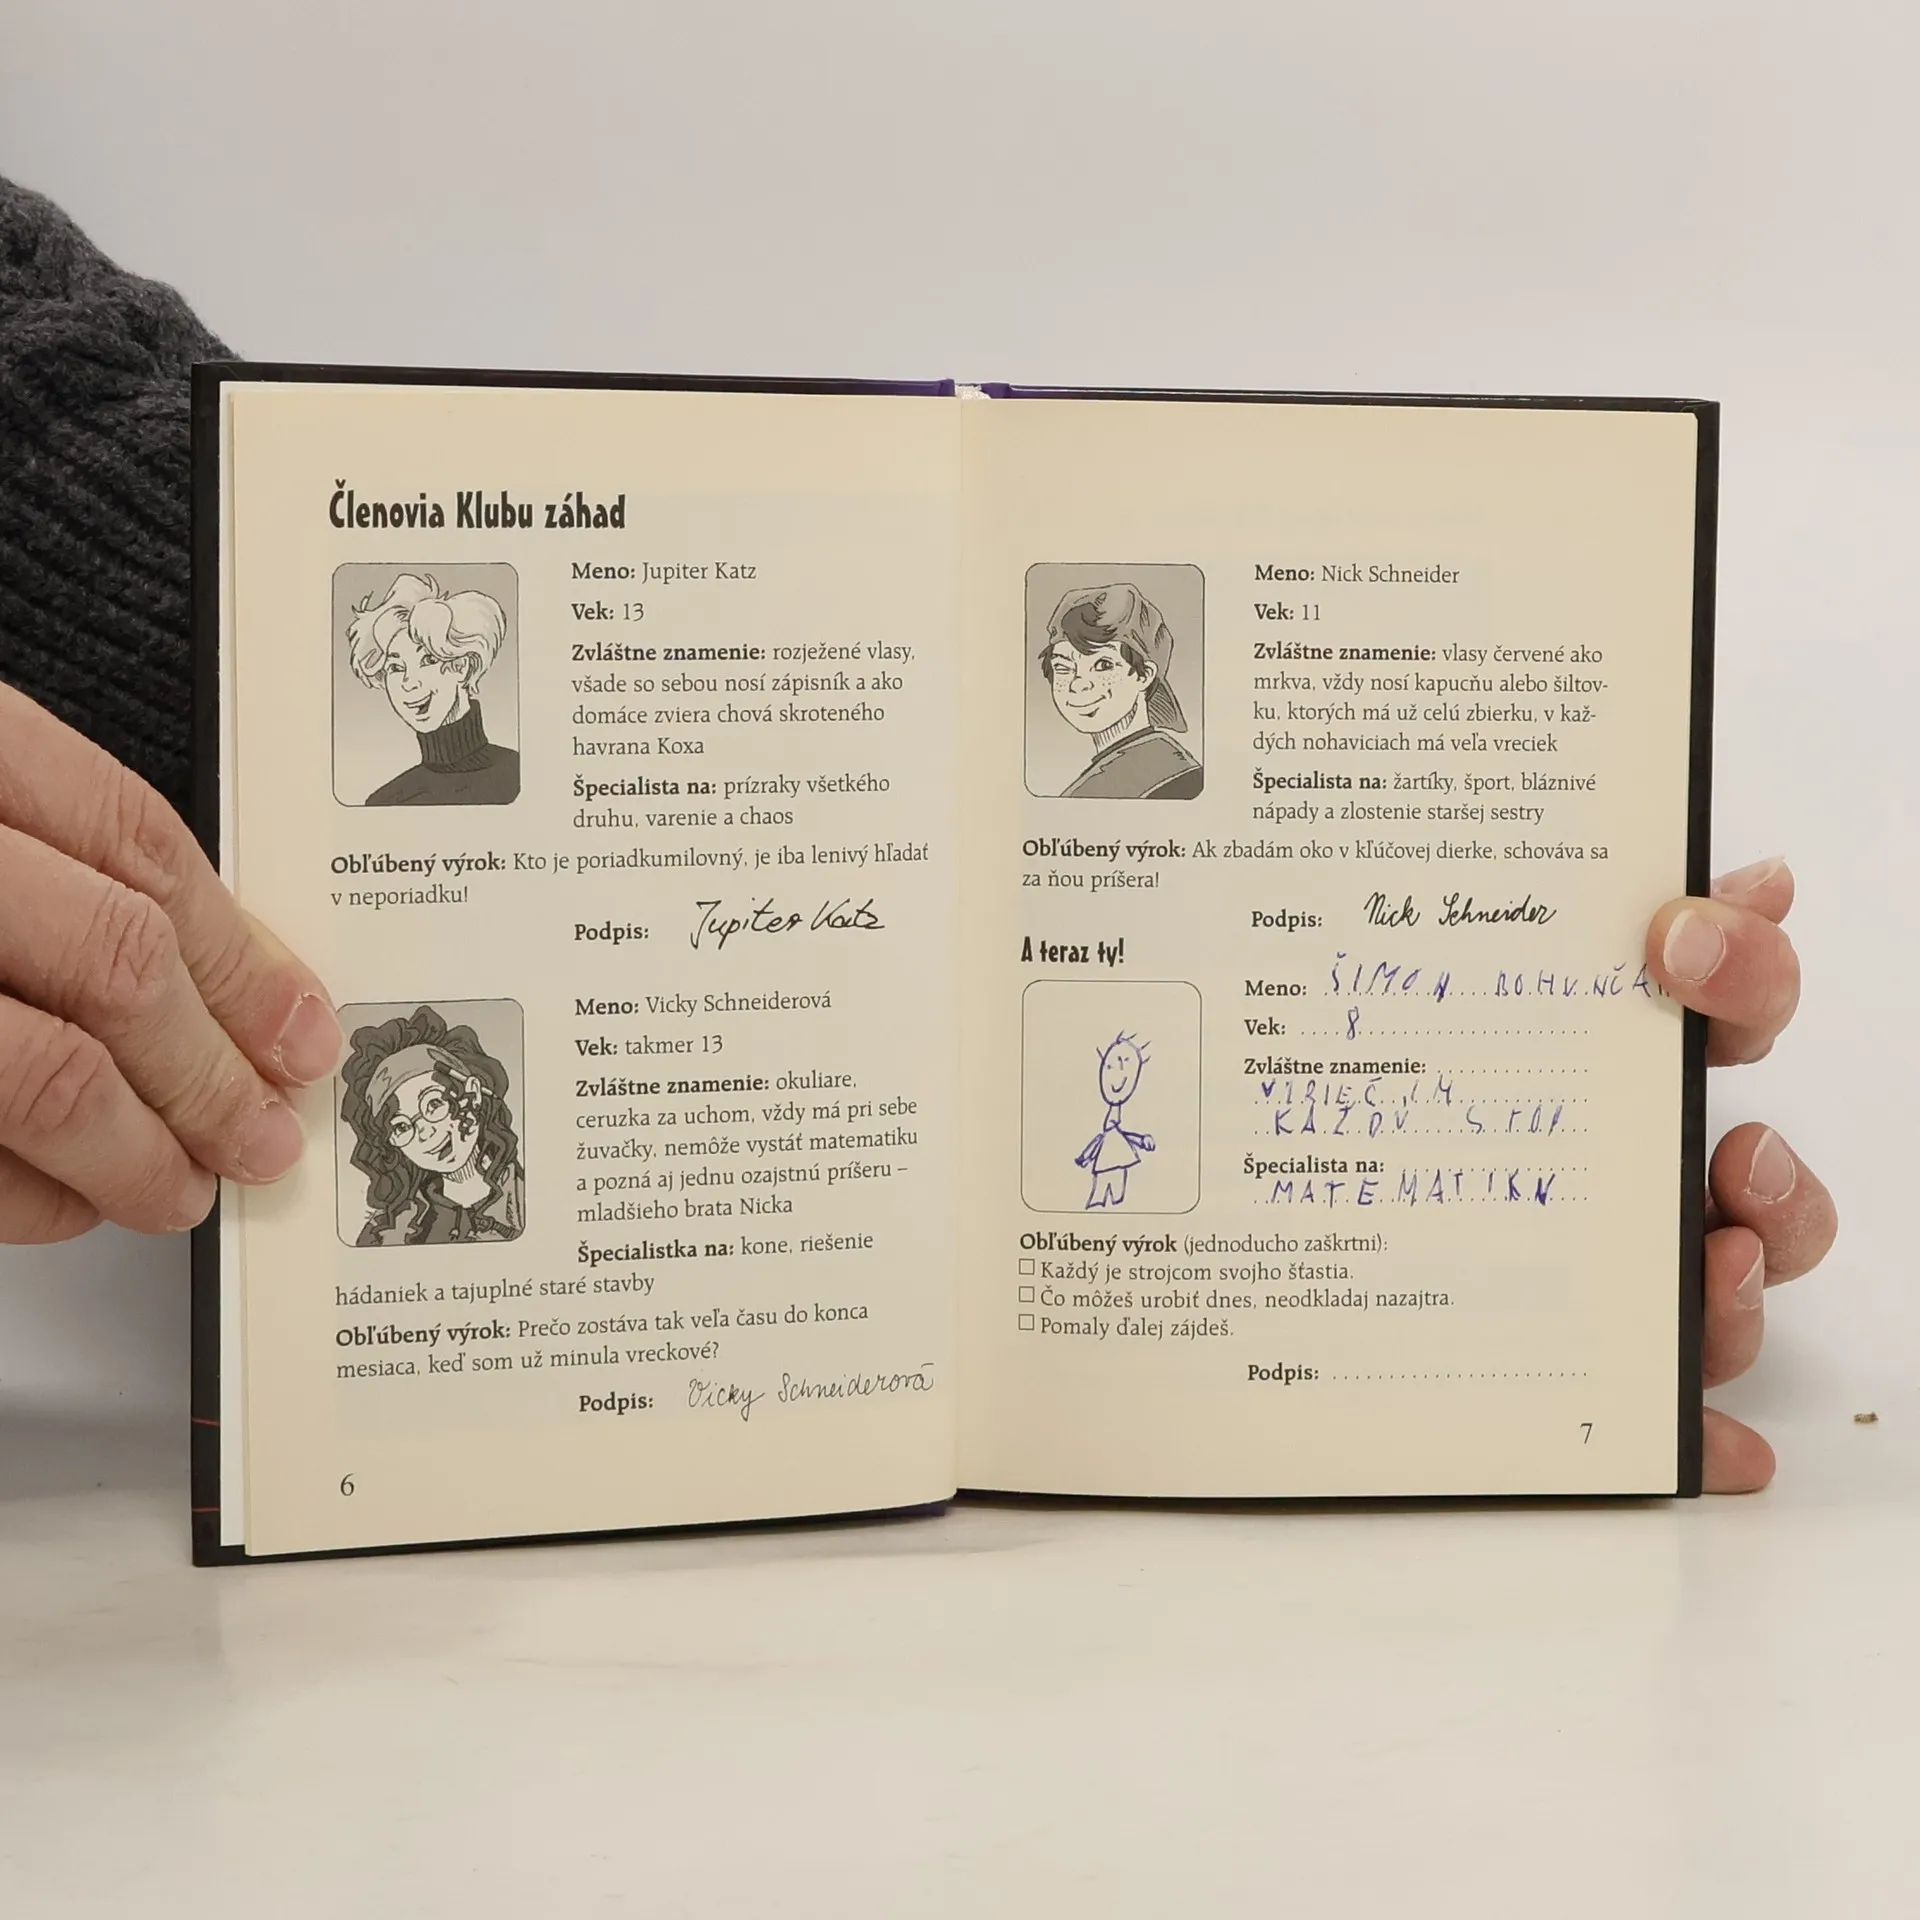 Členovia Klubu záhad
Meno: Jupiter Katz
Vek: 13
Zvláštne znamenie: rozježené vlasy,
všade so sebou nosí zápisník a ako
domáce zviera chová skroteného
havrana Koxa
Špecialista na: prízraky všetkého
druhu, varenie a chaos
Obľúbený výrok: Kto je poriadkumilovný, je iba lenivý hľadať
v neporiadku!
Podpis: Jupiter Katz
Meno: Vicky Schneiderová
Vek: takmer 13
Zvláštne znamenie: okuliare,
ceruzka za uchom, vždy má pri sebe
žuvačky, nemôže vystáť matematiku
a pozná aj jednu ozajstnú príšeru –
mladšieho brata Nicka
Špecialistka na: kone, riešenie
hádaniek a tajuplné staré stavby
Obľúbený výrok: Prečo zostáva tak veľa času do konca
mesiaca, keď som už minula vreckové?
Podpis: Vicky Schneiderová
6
Meno: Nick Schneider
Vek: 11
Zvláštne znamenie: vlasy červené ako
mrkva, vždy nosí kapucňu alebo šiltov-
ku, ktorých má už celú zbierku, v kaž-
dých nohaviciach má veľa vreciek
Špecialista na: žartíky, šport, bláznivé
nápady a zlostenie staršej sestry
Obľúbený výrok: Ak zbadám oko v kľúčovej dierke, schováva sa
za ňou príšera!
Podpis: Nick Schneider
A teraz ty!
Meno: ŠIMON
Vek: 8
Zvláštne znamenie:
Špecialista na:
MATEMATIKU
Obľúbený výrok (jednoducho zaškrtni):
Každý je strojcom svojho šťastia.
Čo môžeš urobiť dnes, neodkladaj nazajtra.
Pomaly ďalej zájdeš.
Podpis:
7